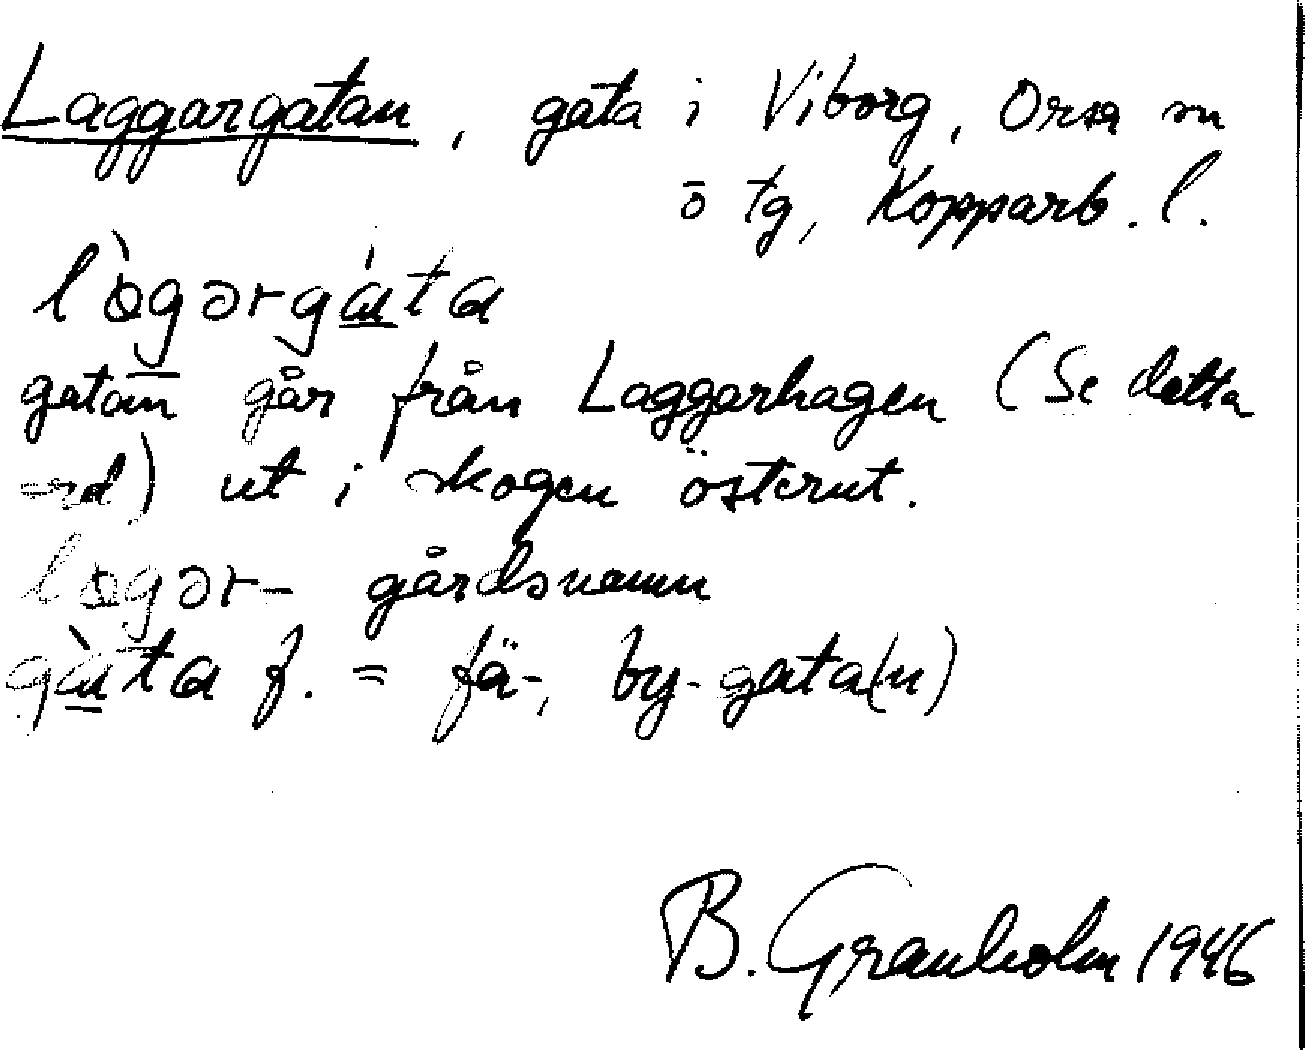 Laggargatan, gata i Viborg, Orsa sn
ö tg, Kopparb. l.
gatan går från Laggarhagen (Se detta
ord) ut i skogen österut.
gårdsnamn
f. = fä-, by-gata(n)
B. Granholm 1946